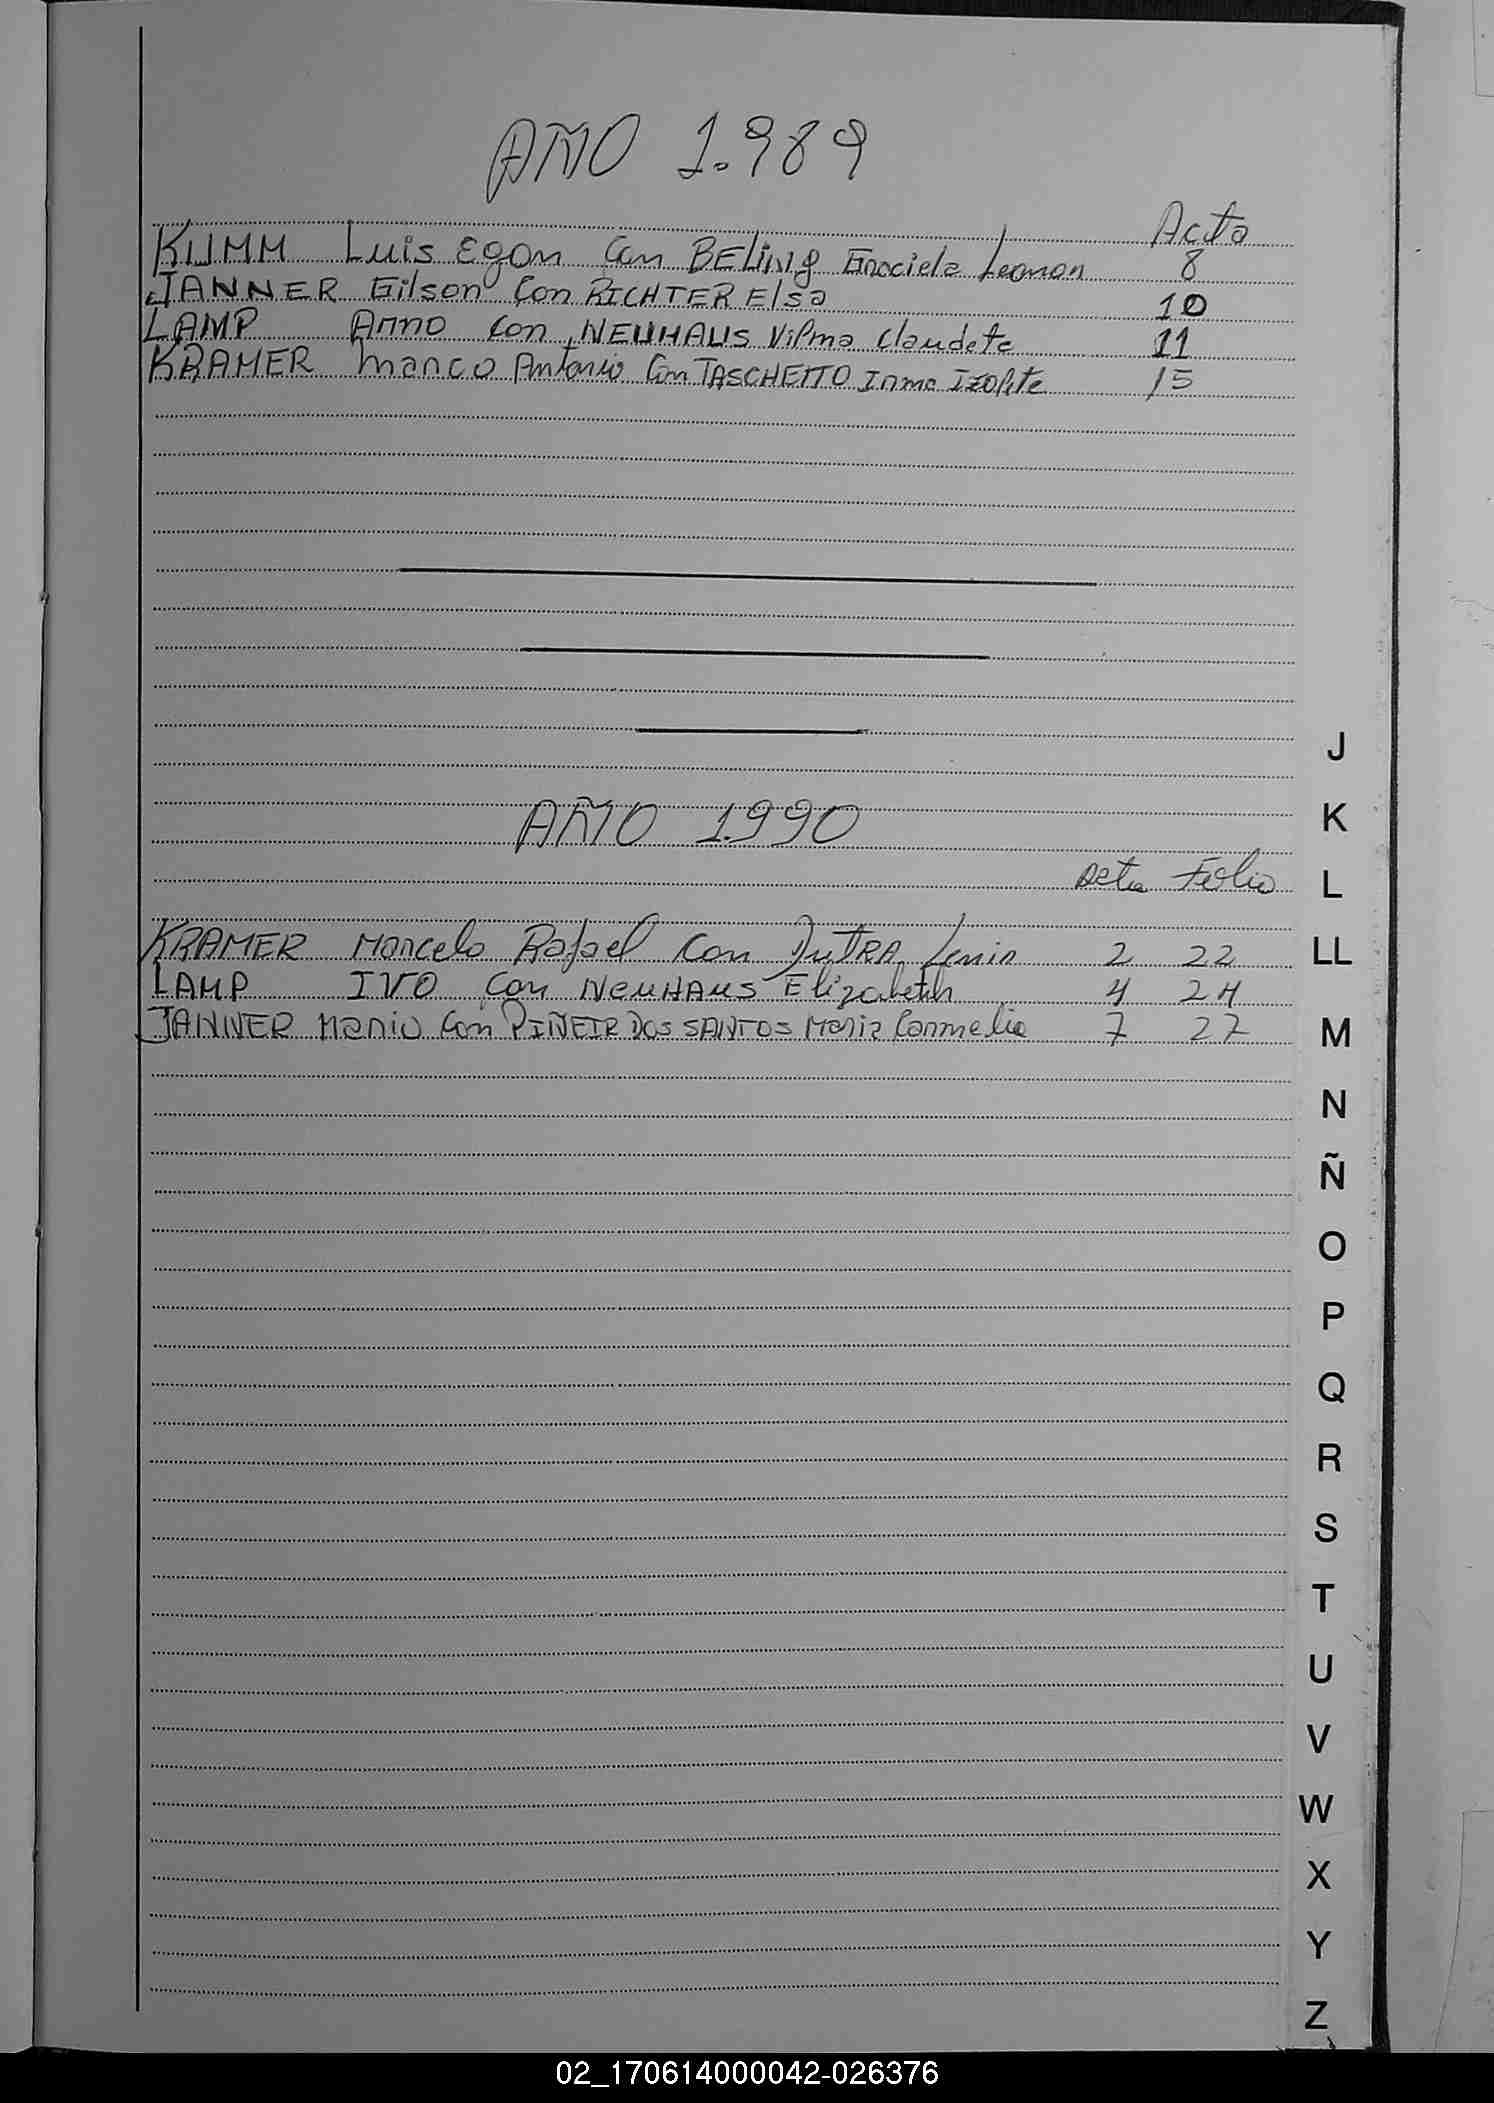 AÑO 1.989
Acta
KUMM Luis Egon Con BELING Graciela Leonor 8
JANNER Gilson Con RICHTER Elsa 10
LAMP Arno Con NEUHAUS Vilma Claudete 11
KRAMER Marco Antonio Con TASCHETTO Irma Izolete 15
AÑO 1990
Acta Folio
KRAMER Marcelo Rafael Con DUTRA Lenir 2 22
LAMP IVO Con NEUHAUS Elizabeth 4 24
JANNER Mario Con PIÑEIR DOS SANTOS Maria Carmelia 7 27
J
K
L
LL
M
N
Ñ
O
P
Q
R
S
T
U
V
W
X
Y
Z
02_170614000042-026376